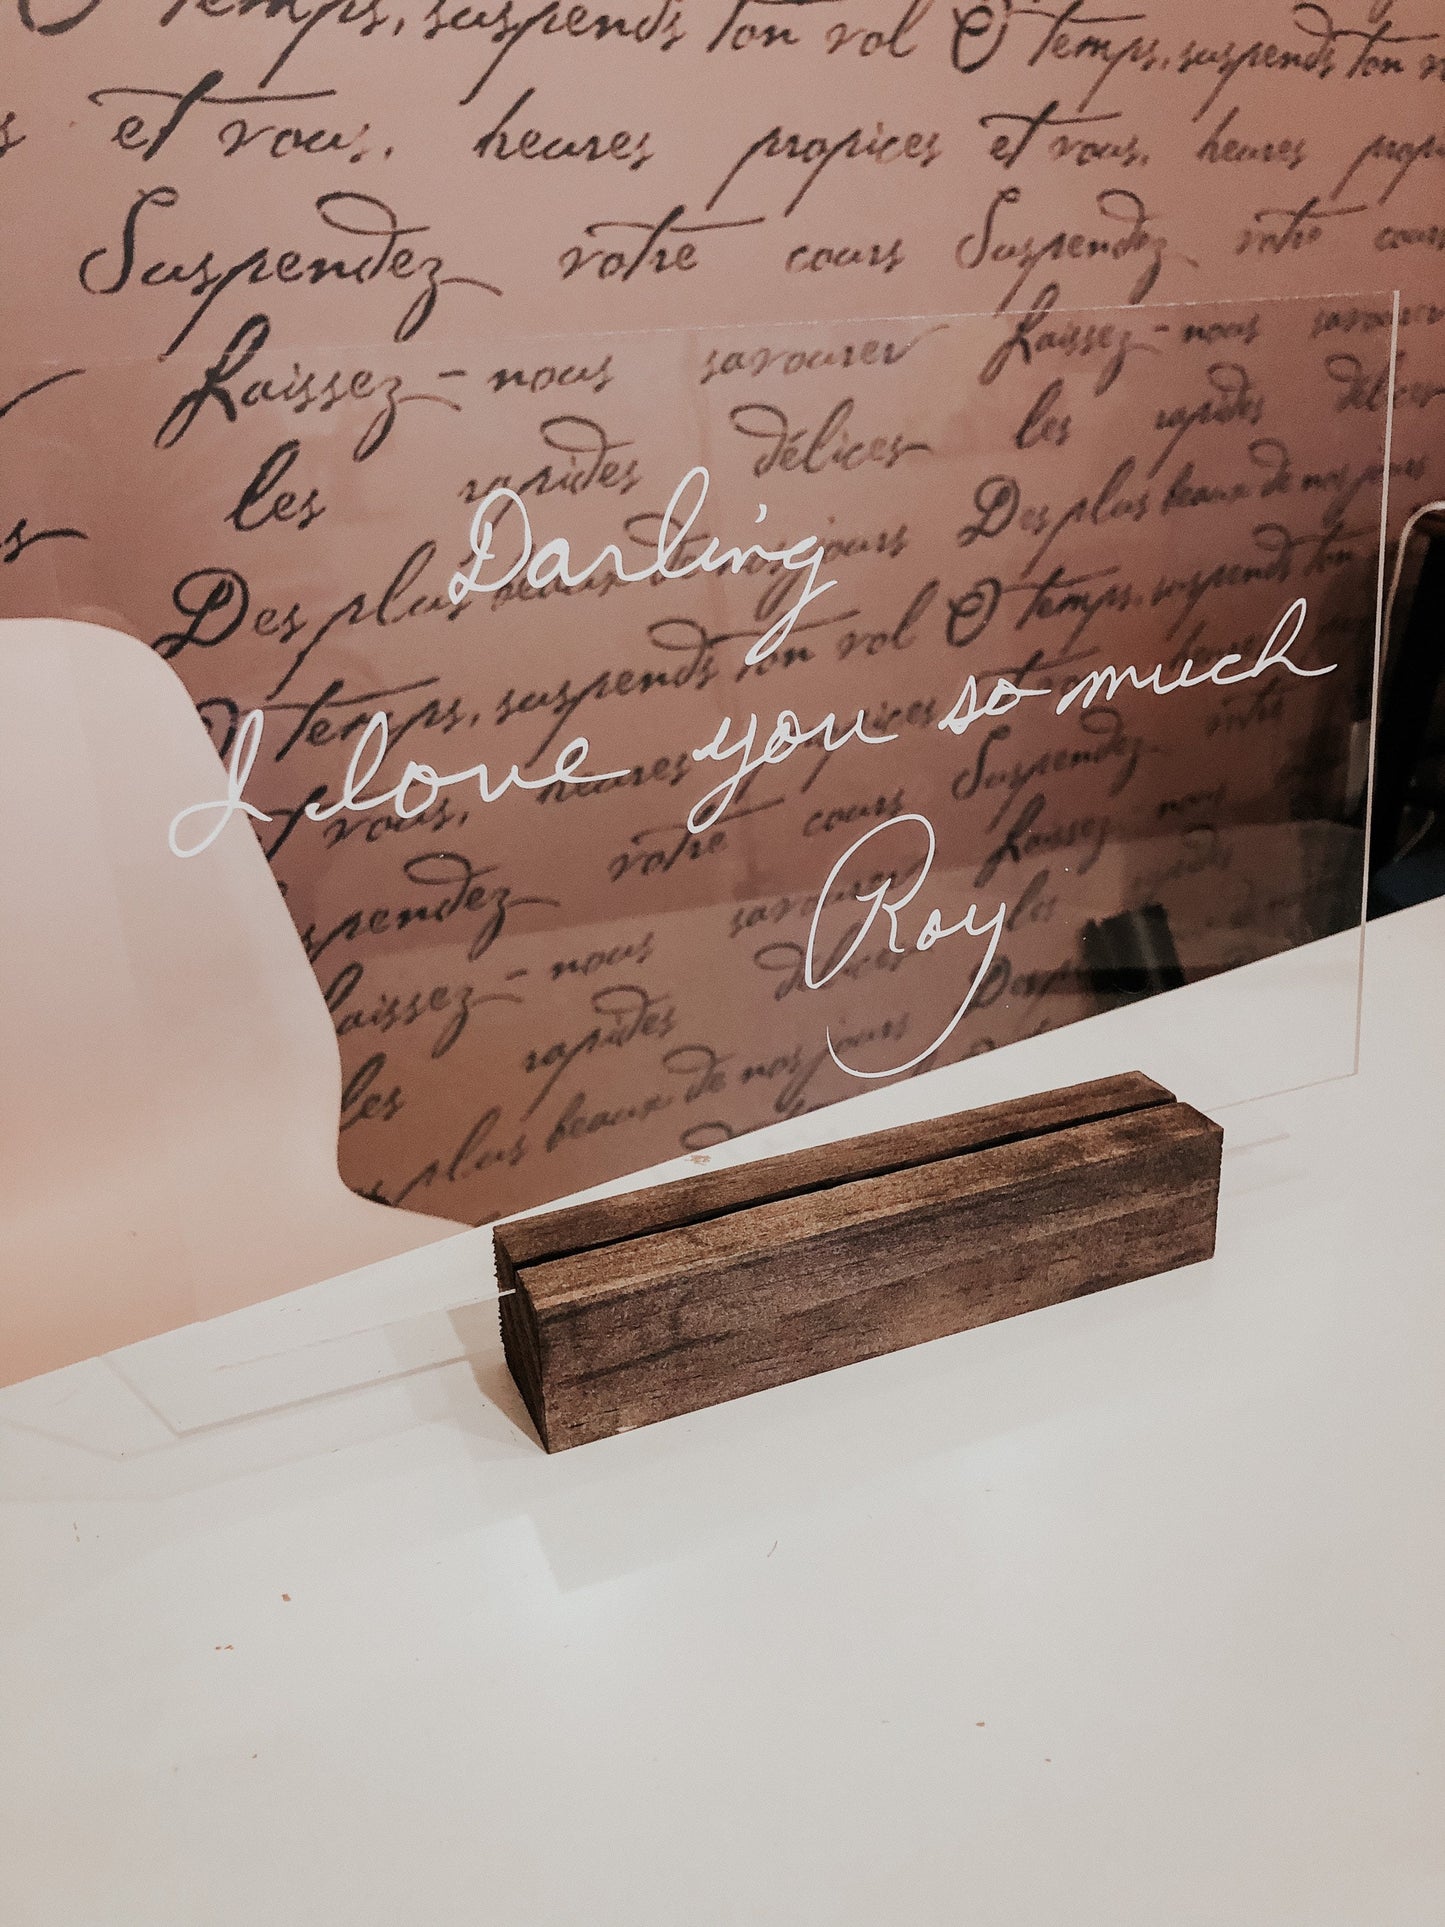 temps, suspends ton vol O temps, suspends ton
et vous, heures propices et vous, heures
Suspendez votre cours Suspendez votre cours
Laissez-nous savourer Laissez-nous savourer
les rapides délices les rapides délices
Des plus beaux de nos jours Des plus beaux de nos jours
temps, suspends ton vol O temps, suspends ton
vous, heures propices
votre cours Suspendez votre
Laissez-nous savourer Laissez-nous
les rapides délices les
plus beaux de nos jours
Darlin'g
I love you so much
Roy